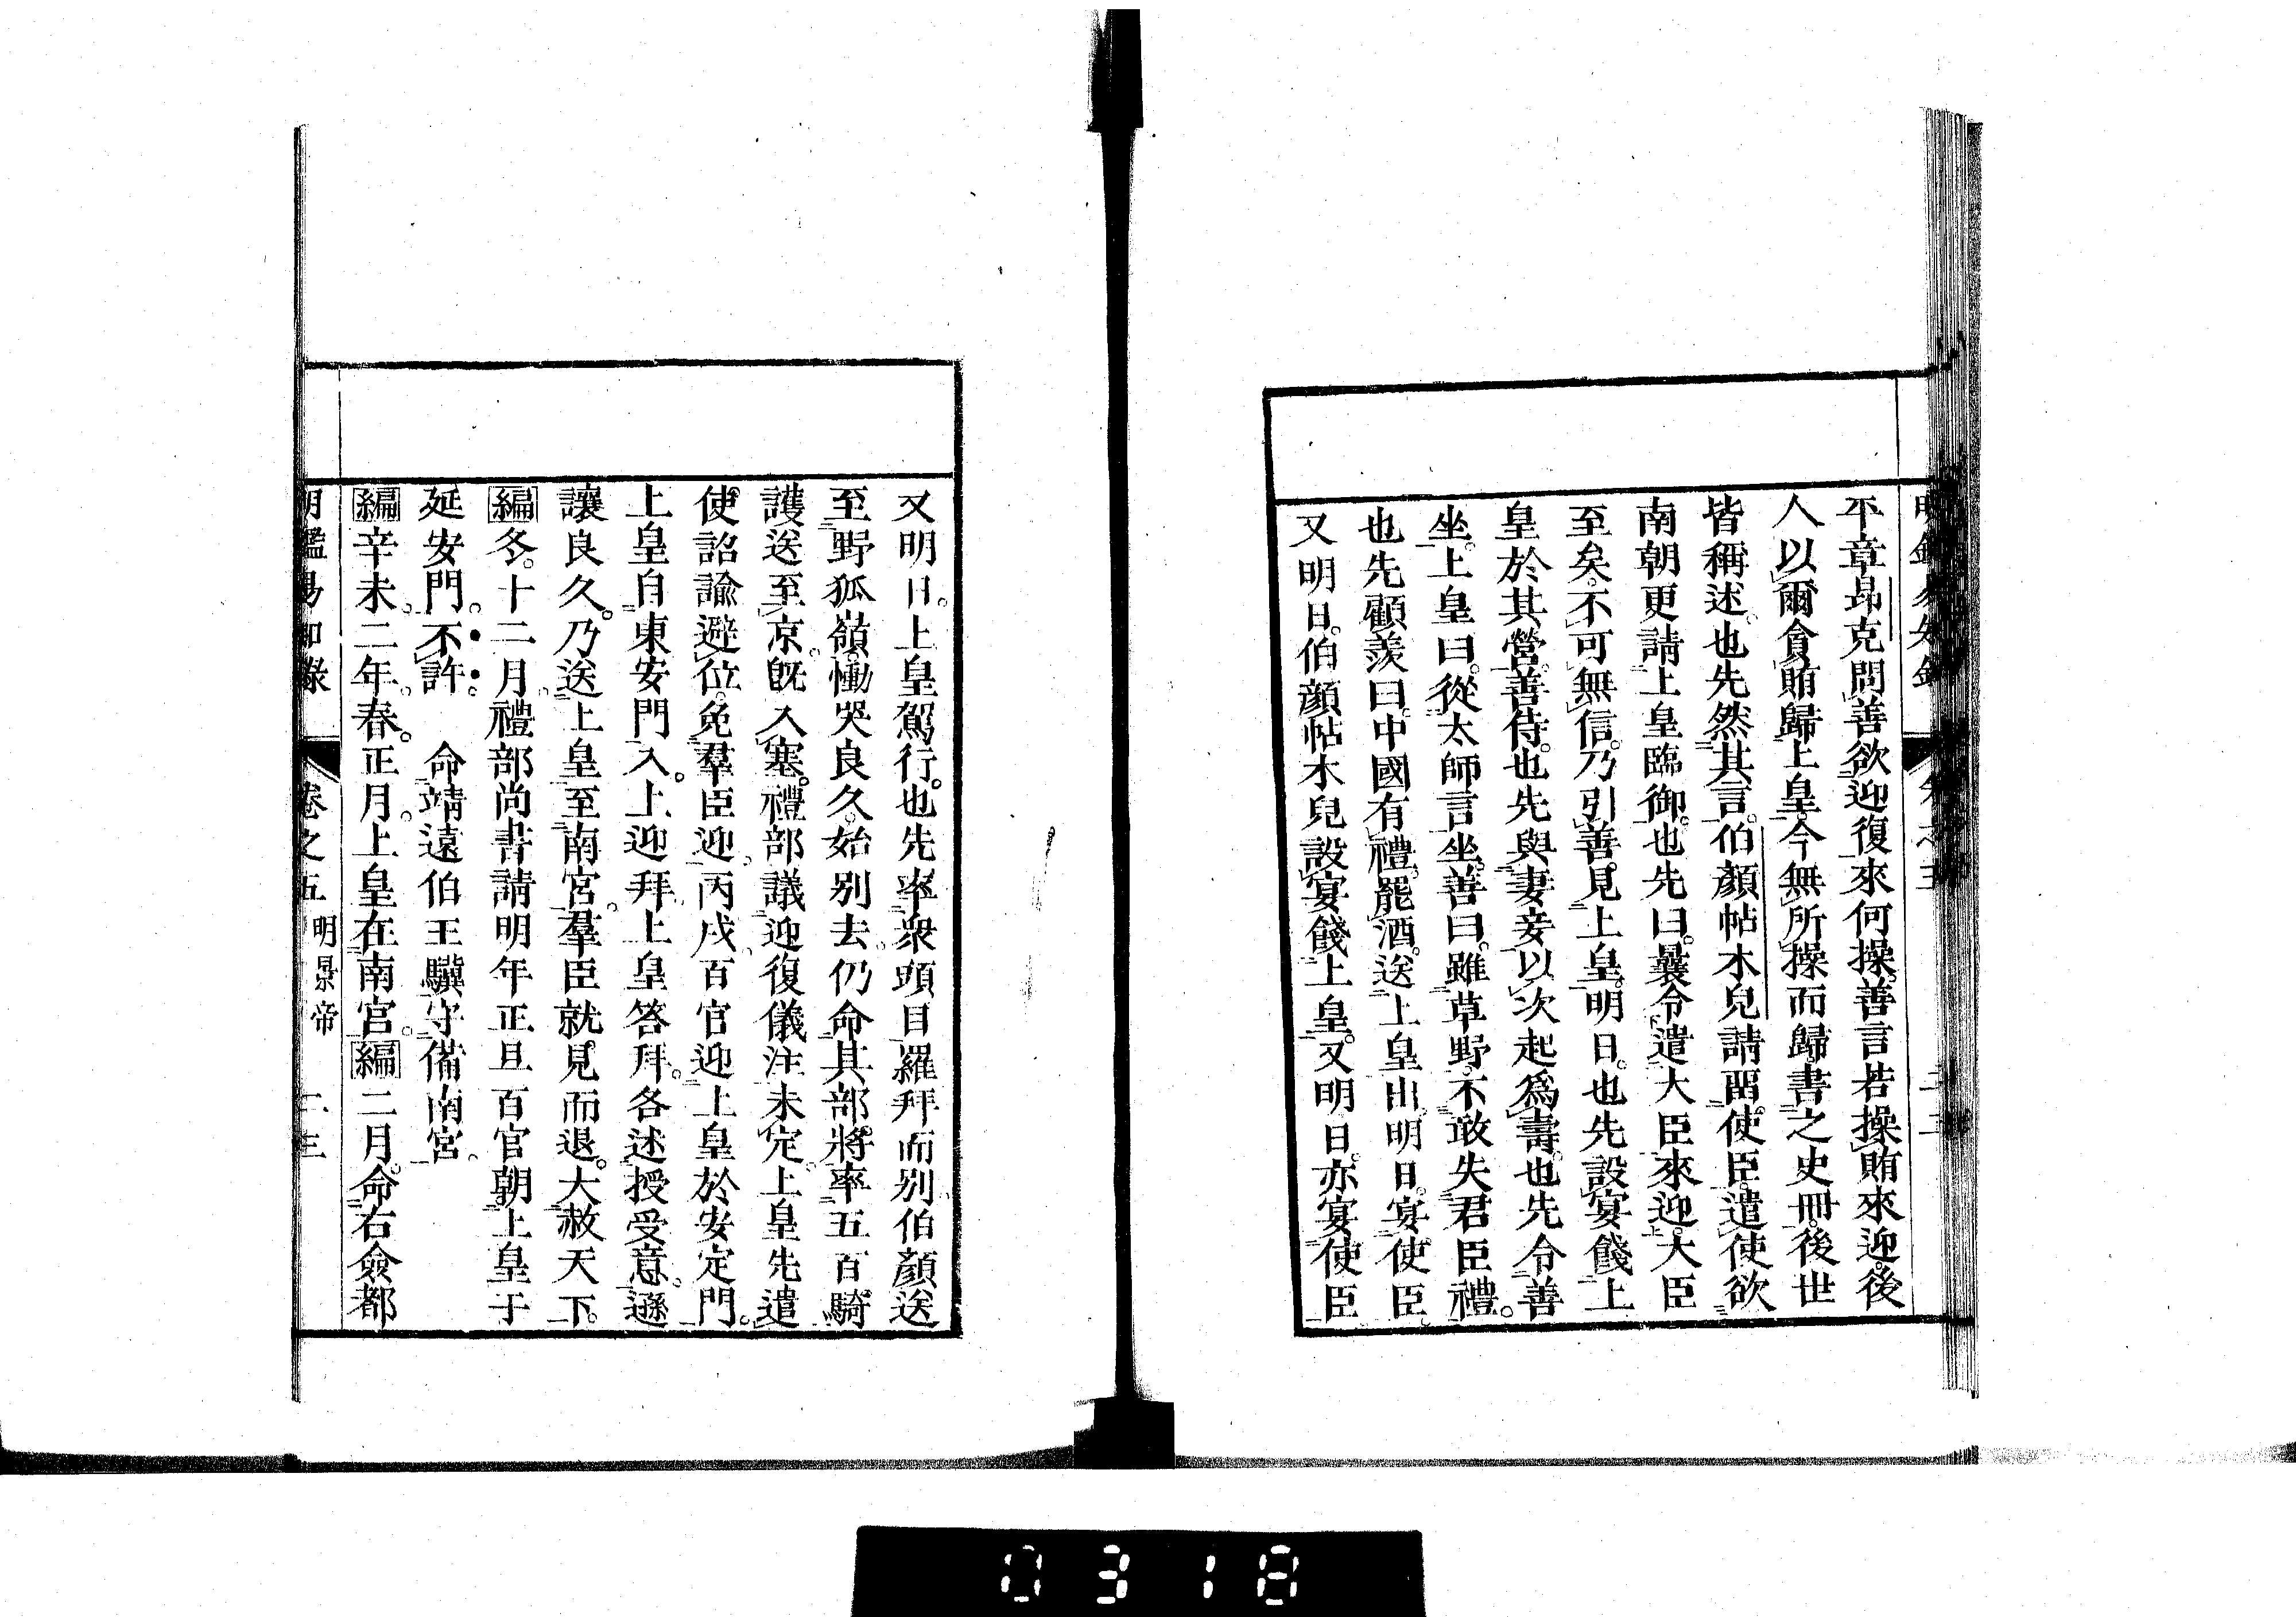 平章昂克問善欲迎復來何操善言若操賄來迎後
人以爾貪賄歸上皇今無所操而歸書之史冊後世
皆稱述也先然其言伯顏帖木兒請留使臣遣使欲
南朝更請上皇臨御也先曰曩令遣大臣來迎大臣
至矣不可無信乃引善見上皇明日也先設宴餞上
皇於其營善侍也先與妻妾以次起爲壽也先令善
坐上皇曰從太師言坐善曰雖草野不敢失君臣禮
也先顧羨曰中國有禮罷酒送上皇出明日宴使臣
又明日伯顏帖木兒設宴餞上皇又明日亦宴使臣
又明日上皇駕行也先率衆頭目羅拜而別伯顏送
至野狐嶺慟哭良久始別去仍命其部將率五百騎
護送至京旣入塞禮部議迎復儀注未定上皇先遣
使詔諭避位免羣臣迎丙戌百官迎上皇於安定門
上皇自東安門入上迎拜上皇答拜各述授受意遜
讓良久乃送上皇至南宮羣臣就見而退大赦天下
編冬十二月禮部尚書請明年正旦百官朝上皇于
延安門不許 命靖遠伯王驥守備南宮
編辛未二年春正月上皇在南宮編二月命右僉都
明鑑易知錄 卷之五 明景帝 二三
0318